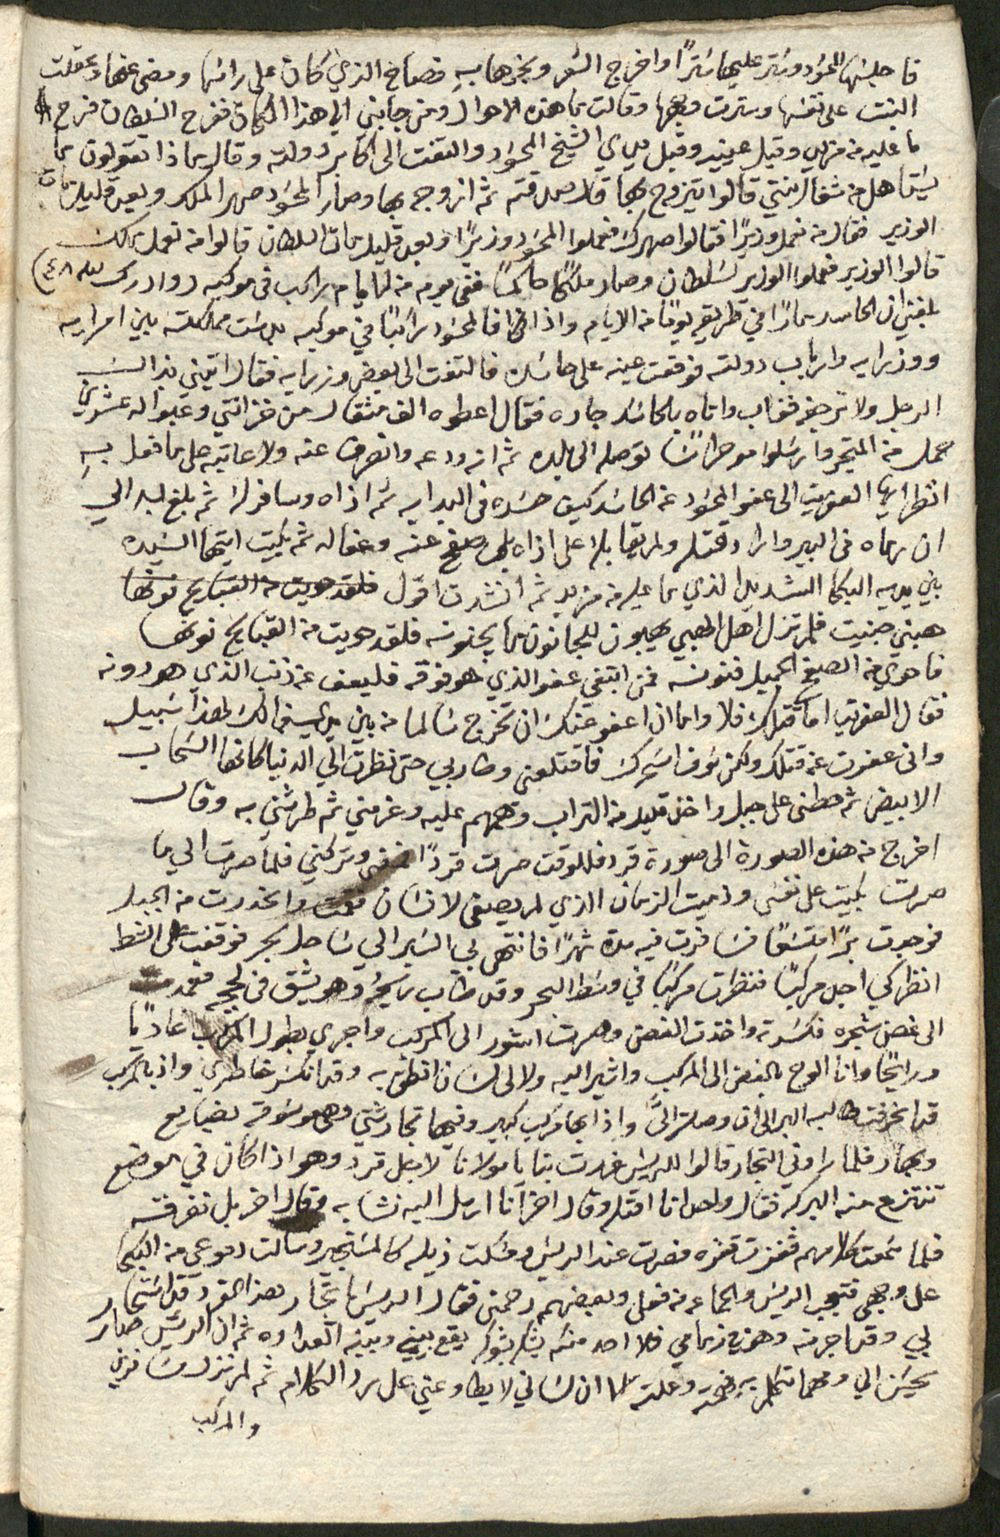 فاجلسها المحسود وستر عليها ستراً واخرج الشعر وبخرها به فصاح الذي كان على راسها ومضى عنها وعقلت
البنت على نفسها وسترت وجهها وقالت ما هذه الاحوال ومن جابني الى هذا المكان ففرح السلطان فرح
ما عليه من مزيد وقبل عينيه وقبل يدي الشيخ المحسود والتفت الى اكابر دولته وقال ماذا تقولون ما
يستاهل من شفا لي بنتي قالوا يتزوج بها قال صدقتم ثم ازوجه بها وصار المحسود صهر الملك وبعد قليل مات
الوزير فقال من نعمل وزيراً فقالوا صهرك فعملوا المحسود وزيراً وبعد قليل مات السلطان قالوا من نعمل ملك
قالوا الوزير فعملوا الوزير سلطان وصار ملكاً حاكماً ففي يوم من الايام راكب في موكبه وادرك ليله ٤٨
بلغني ان الحاسد مارًا في طريقه يوماً من الايام واذا المحسود راكباً في موكبه بدست مملكته بين امرايه
ووزرايه وارباب دولته فوقعت عينه على حاسده فالتفت الى بعض وزرايه فقال اتيني بذالك
الرجل ولا ترجفه فغاب واتاه بالحاسد جاره فقال اعطوه الف مثقال من خزانتي وعبوا له عشرين
حمل من المتجر وارسلوا معه حراساً توصله الى بلده ثم انه ودعه وانصرف عنه ولا عاتبه على ما فعل به
انظر ايها العفريت الى عفو المحسود عن الحاسد كيف حسده في البدايه ثم اذاه وسافر له ثم بلغ به الى
ان رماه في البير واراد قتله ولم يقابله على اذاه بل صفح عنه وعفا له ثم بكيت ايتها السيده
بين يديه البكا الشديد الذي ما عليه من مزيد ثم انشدت اقول
هبني جنيت فلم تزل اهل النهى يهبون للجانون ما يجنونه فلقد حويت من القبايح فونها
فاحوي من الصفح الجميل فنونه فمن ابتغى عفو الذي هو فوقه فليعف عن ذنب الذي هو دونه
فقال العفريت اما قتلك فلا واما ان اعفو عنك ان تخرج سالما من بين يدي فما لك لهذا سبيل
واني عفوت عن قتلك ولكن سوف اسحرك فاقتلعني وطار بي حتى نظرت الى الدنيا كانها السحاب
الابيض ثم حطني على جبل واخذ قليل من التراب وهمهم عليه وعزم ثم طرشني به وقال
اخرج من هذه الصورة الى صورة قرد فللوقت صرت قرداً وتركني فلما صرت الى ما
صرت بكيت على نفسي وذميت الزمان الذي لم يصفى لانسان وانحدرت من الجبل
فوجدت براً متسعاً فسافرت فيه مدة شهراً فانتهى بي السير الى ساحل بحر فوقفت على الشط
انظر لي اجل مركباً فنظرت مركباً في وسط البحر وقد طاب ريحه وهو يشق في لجج فعمدت
الى غصن شجره فكسرته واخذت الغصن وصرت اشور الى المركب واجري بطول المركب غادياً
ورايحاً وانا الوح بالغصن الى المركب واشير اليه ولا لي لسان انطق به وقد انكسر خاطري واذ بالمركب
قد انحرفت طالبه البر الى ان وصلت الي واذا بها مركب كبير وفيها تجار شتى وهي موسوقه بضايع
وبهار فلما راوني التجار قالوا للريس غدرت بنا يا مولانا لاجل قرد وهو اذا كان في موضع
تنتزع منه البركه فقال واحد انا اقتله وقال اخر انا ارمي اليه نشابه وقال اخر بل نغرقه
فلما سمعت كلامهم قفزت قفزه فصرت عند الريس ومسكت ذيله كالمستجير وسالت دموعي من البكا
على وجهي فتعجب الريس والجماعه من فعلي وبعضهم رحمني فقال الريس يا تجار هذا القرد قد استجار
بي وقد اجرته وهو في ذمامي فلا احد منكم يشكه بشوكه يقع بيني وبينه العداوه ثم ان الريس صار
يحسن الي ومهما تكلم به فهمته وعلمته الا ان لساني لا يطاوعني على رد الكلام ثم لم نزل مسافرين
والمركب